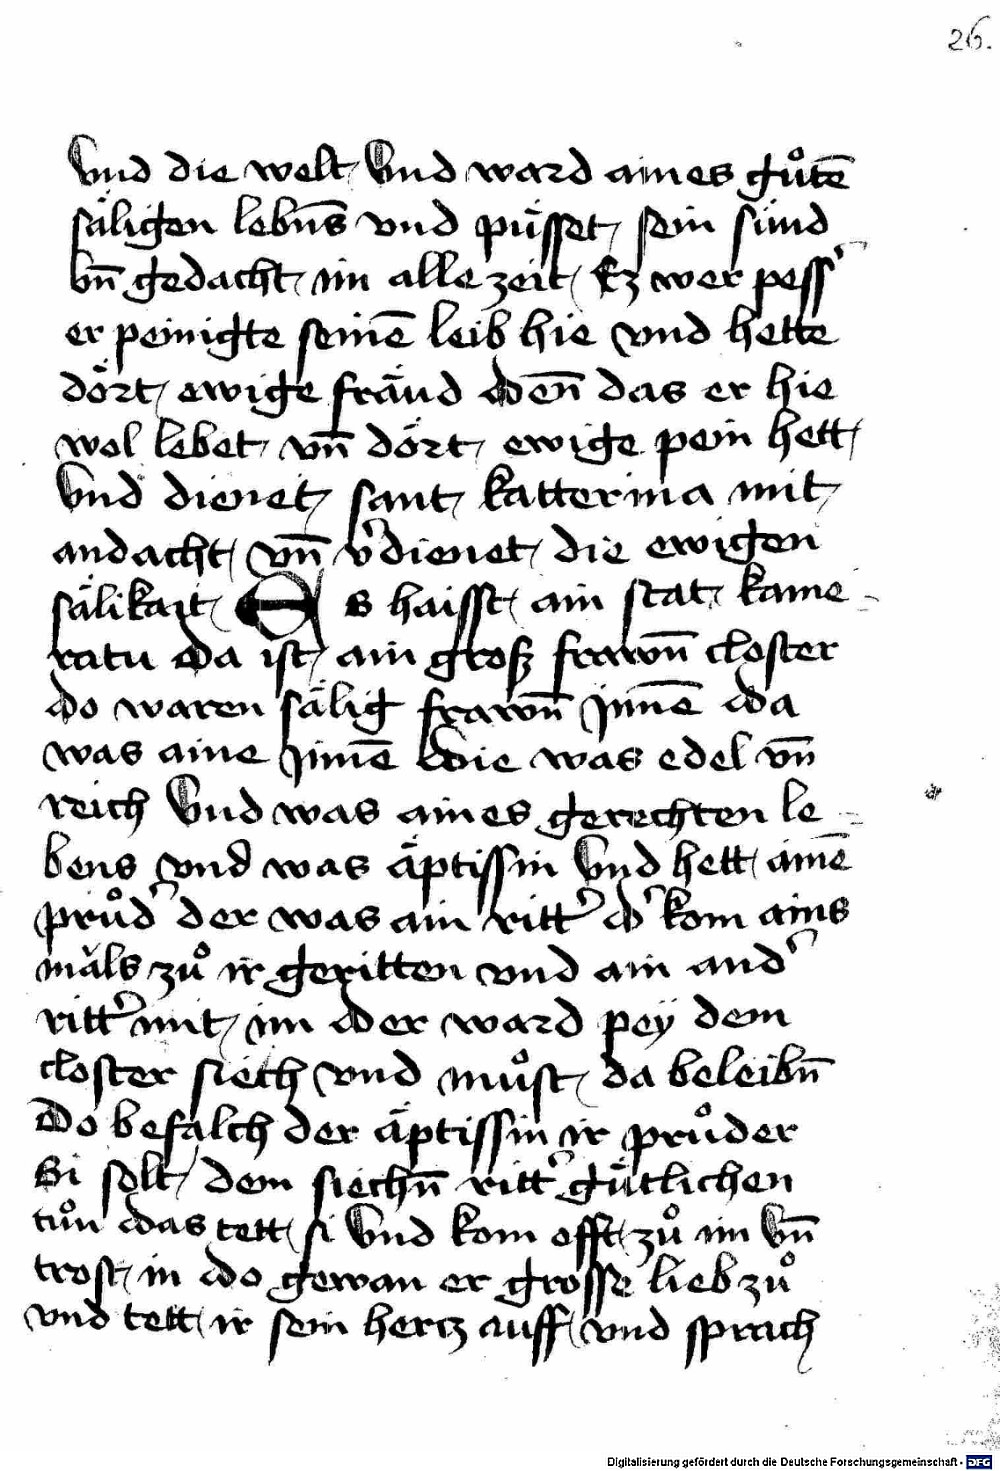 26.
Vnd die welt Vnd ward aines gůtē
säligen lebn̄s vnd püsset sein sünd
vn̄ gedacht im alle zeit Ez wer pessʾ
er peinigte seinē leib hie vnd hette
dört ewige fräud den̄ das er hie
wol lebet vn̄ dört ewige pein hett
Vnd dienet sant katterina mit
andacht vn̄ vʾdienet die ewigen
sälikait Es haisst ain stat kame-
ratu da ist ain grosz frawn̄ closter
do waren sälig frawn̄ jnnē da
was aine jnnē die was edel vn̄
reich Vnd was aines gerechten le-
bens vnd was äptissin Vnd hett ainē
průdʾ der was ain rittʾ dʾ kom ains
mäls zů ir geritten vnd ain andʾ
rittʾ mit im der ward pey dem
closter siech vnd můst da beleibn̄
Do befalch der äptissin ir průder
Si solt dem siechn̄ rittʾ gütlichen
tůn das tett si Vnd kom offt zů im Vn̄
trost in do gewan er grosse lieb zů
vnd tett ir sein hertz auff vnd sprach
Digitalisierung gefördert durch die Deutsche Forschungsgemeinschaft - DFG